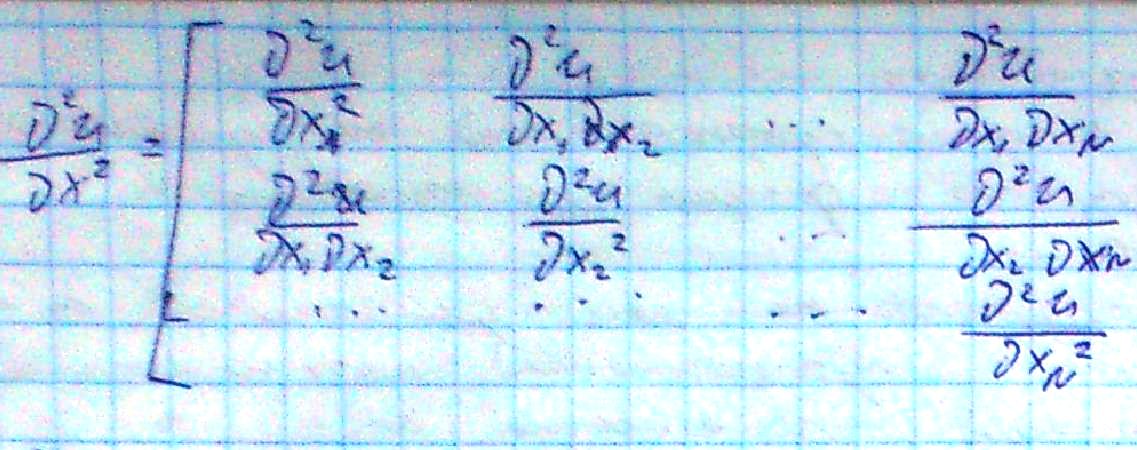 ∂²u/∂x² = [ ∂²u/∂x₁² ∂²u/∂x₁∂x₂ ... ∂²u/∂x₁∂xₙ
∂²u/∂x₁∂x₂ ∂²u/∂x₂² ... ∂²u/∂x₂∂xₙ
... ... ... ∂²u/∂xₙ²